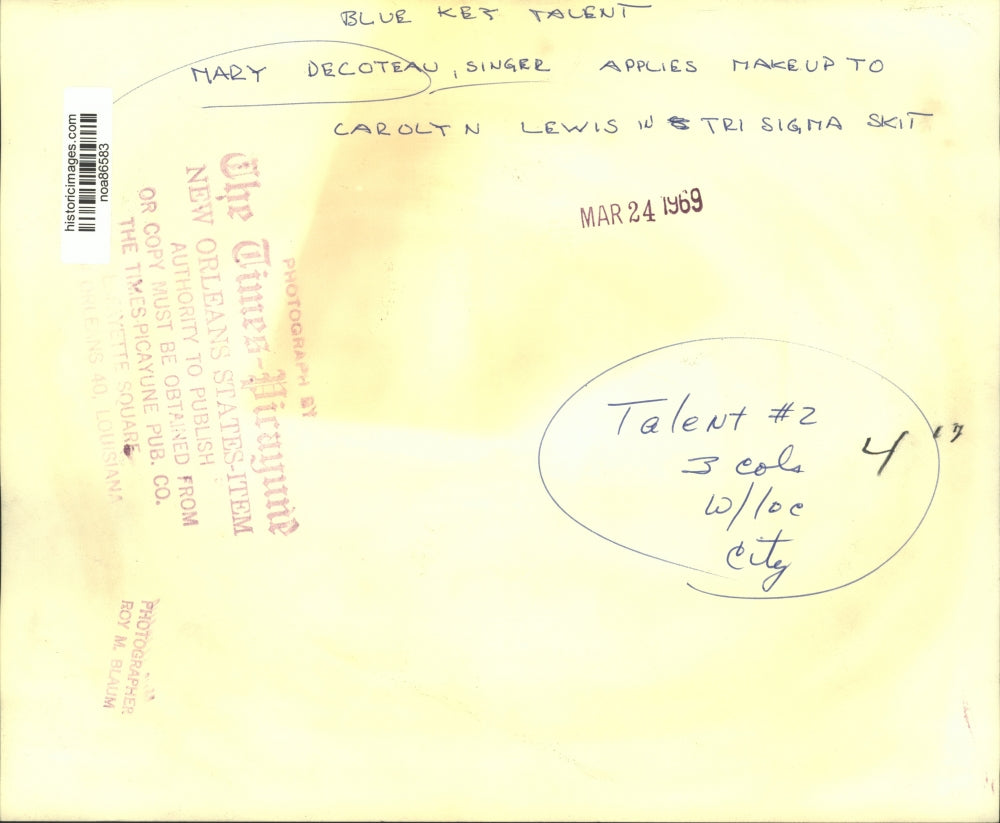 BLUE KEY TALENT
MARY DECOTEAU, SINGER APPLIES MAKEUP TO
CAROLYN LEWIS IN TRI SIGMA SKIT
historicimages.com
noa86583
MAR 24 1969
PHOTOGRAPH BY
The Times-Picayune
NEW ORLEANS STATES-ITEM
AUTHORITY TO PUBLISH
OR COPY MUST BE OBTAINED FROM
THE TIMES-PICAYUNE PUB. CO.
LAFAYETTE SQUARE
ORLEANS 40, LOUISIANA
Talent #2
3 cols
w/loc
City
4
PHOTOGRAPHER
ROY M. BLAUM